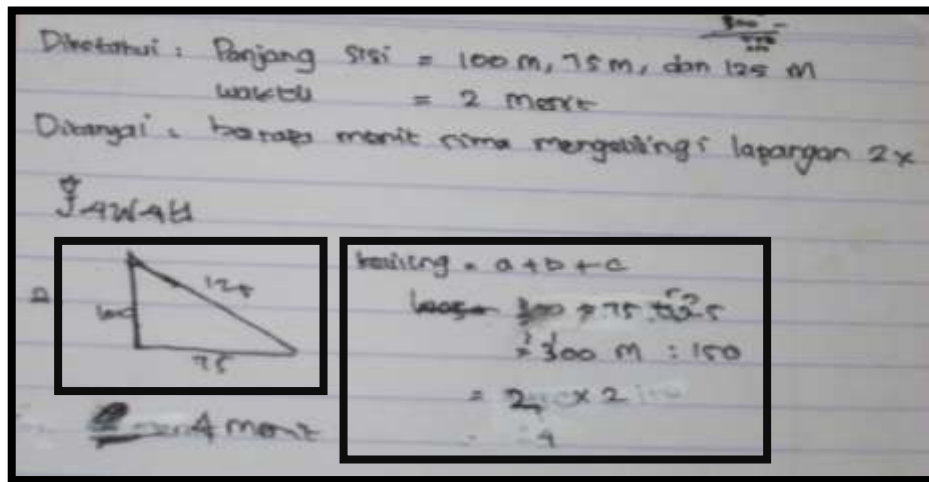 Diketahui : Panjang sisi = 100 m, 75 m, dan 125 m
waktu = 2 menit
Ditanyai : berapa menit rima mengelilingi lapangan 2x
JAWAB
125
100
75
keliling = a + b + c
100 + 75 + 125
= 300 m : 150
= 2 x 2
4
4 menit